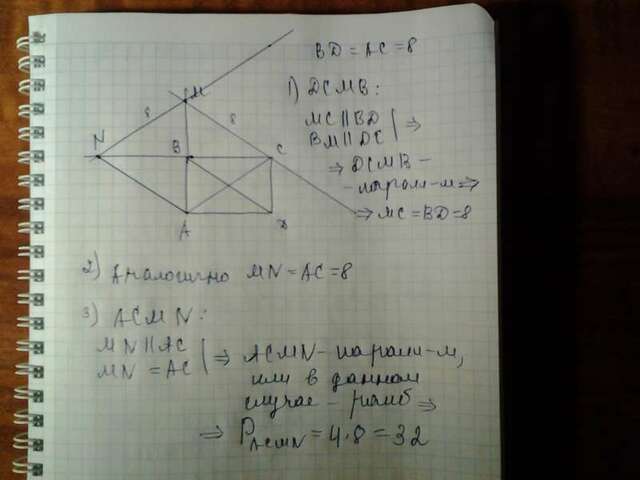 BD = AC = 8
1) DCMB:
MC || BD
BM || DC | ⇒
⇒ DCMB -
- парал-м ⇒
⇒ MC = BD = 8
M
8
8
N
B
C
A
D
2) Аналогично MN = AC = 8
3) ACMN:
MN || AC
MN = AC | ⇒ ACMN - парал-м,
или в данном
случае - ромб ⇒
⇒ P_ACMN = 4·8 = 32